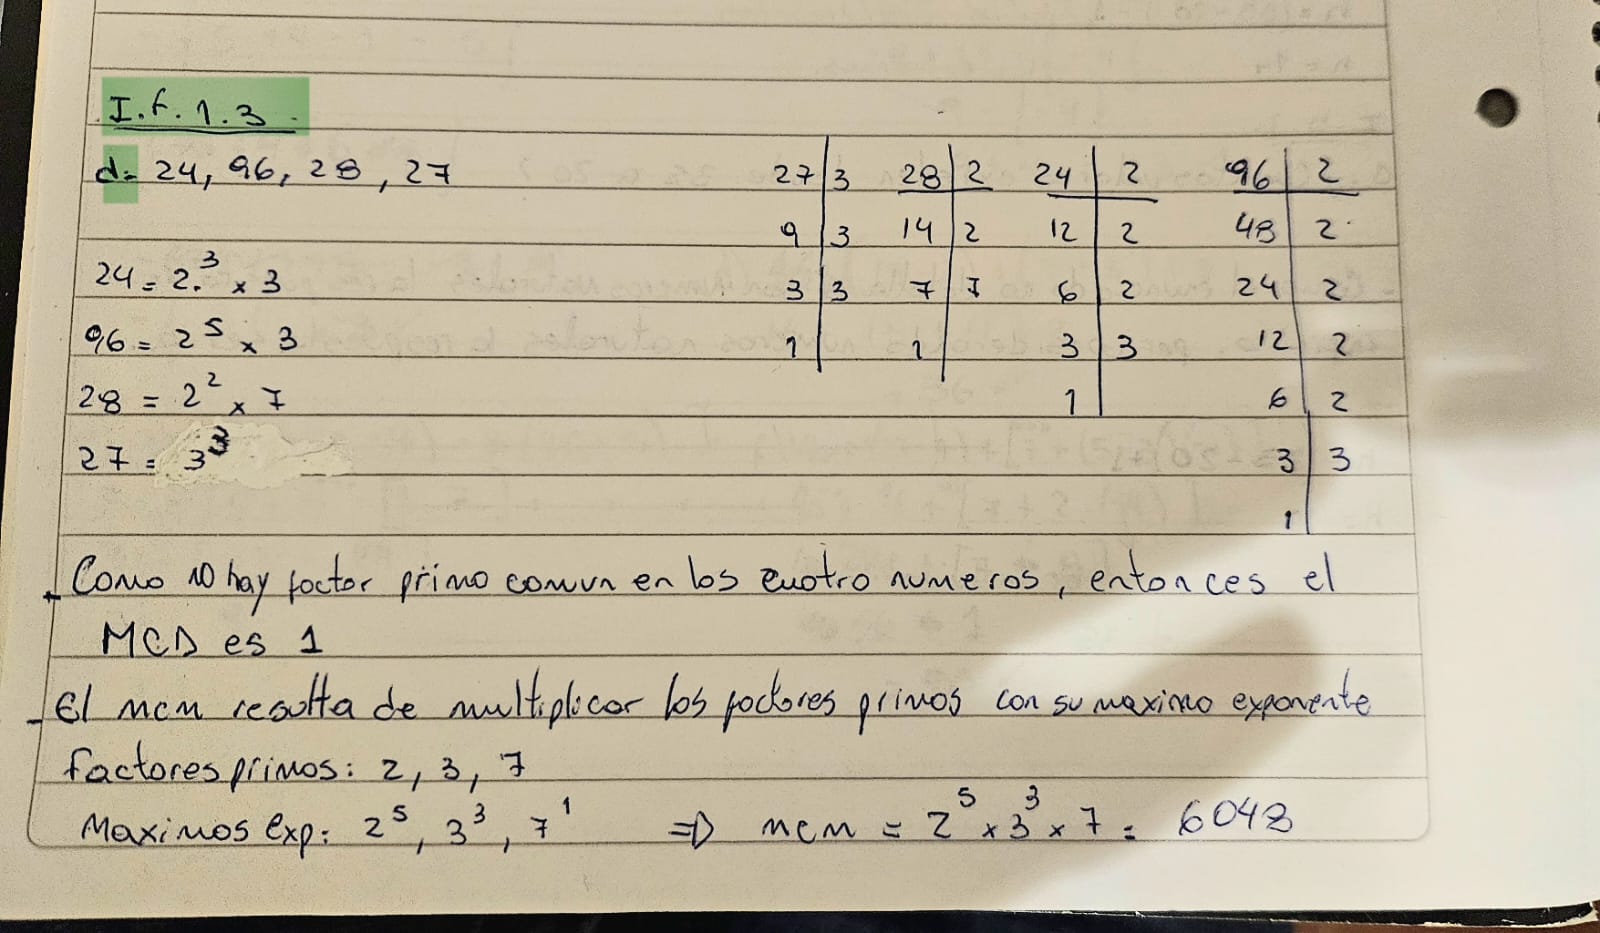 I.f.1.3.
d= 24, 96, 28, 27
27 | 3 28 | 2 24 | 2 96 | 2
9 | 3 14 | 2 12 | 2 48 | 2
24 = 2.³ x 3
3 | 3 7 | 7 6 | 2 24 | 2
96 = 2⁵ x 3
1 | 1 | 3 | 3 12 | 2
28 = 2² x 7
1 | 6 | 2
27 = 3³
3 | 3
1 |
Como no hay factor primo comun en los cuatro numeros, entonces el
MCD es 1
- El mcm resulta de multiplicar los factores primos con su maximo exponente
factores primos: 2, 3, 7
Maximos exp: 2⁵, 3³, 7¹ ⇒ mcm = 2⁵ x 3³ x 7 = 6048